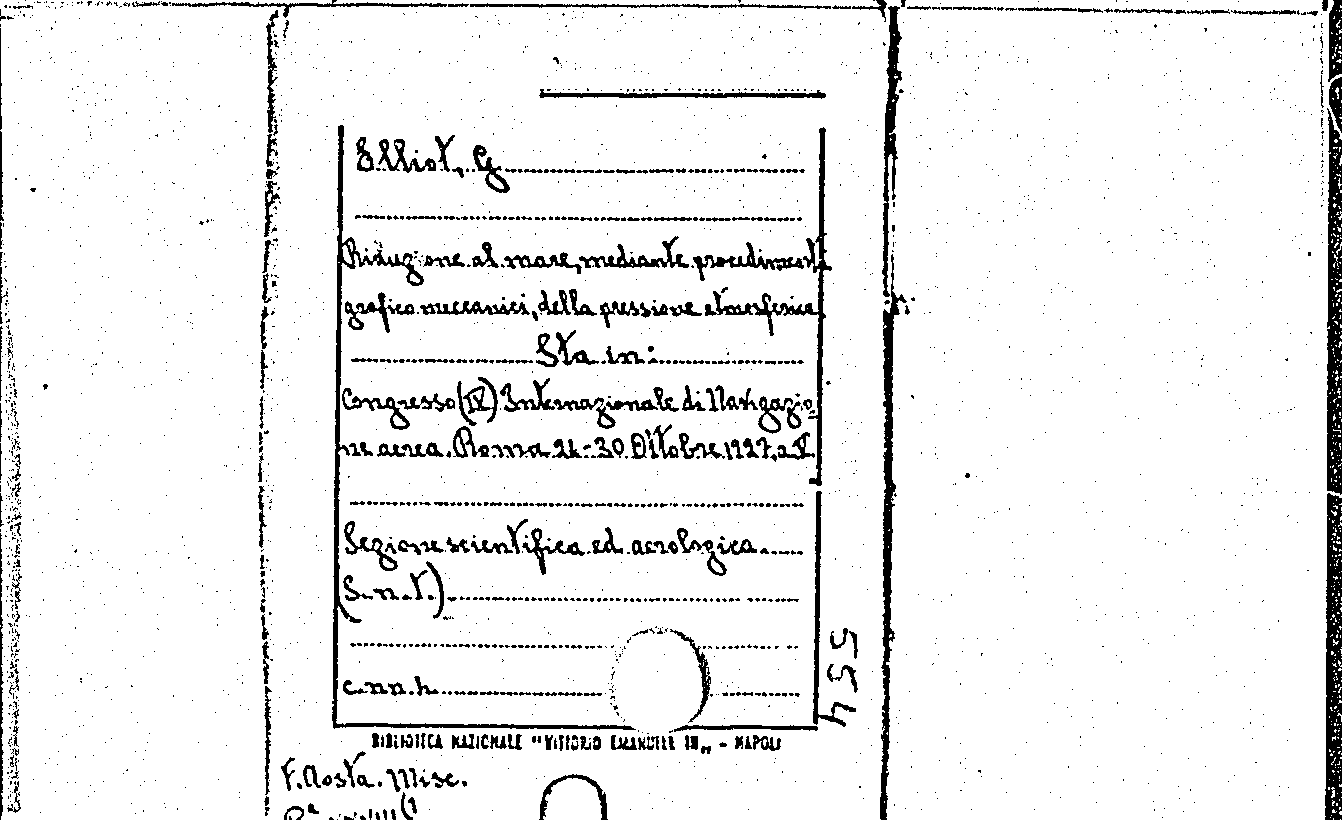 Elliot, G
Riduzione al mare, mediante procedimenti
grafico meccanici, della pressione atmosferica
Sta in:
Congresso (IV) Internazionale di Navigazio
ne aerea. Roma 24-30 Ottobre 1927, a. V.
Sezione scientifica ed aerologica.
(S.n.t.)
c.nn.h
554
BIBLIOTECA NAZIONALE "VITTORIO EMANUELE III" - NAPOLI
F. Aosta. Misc.